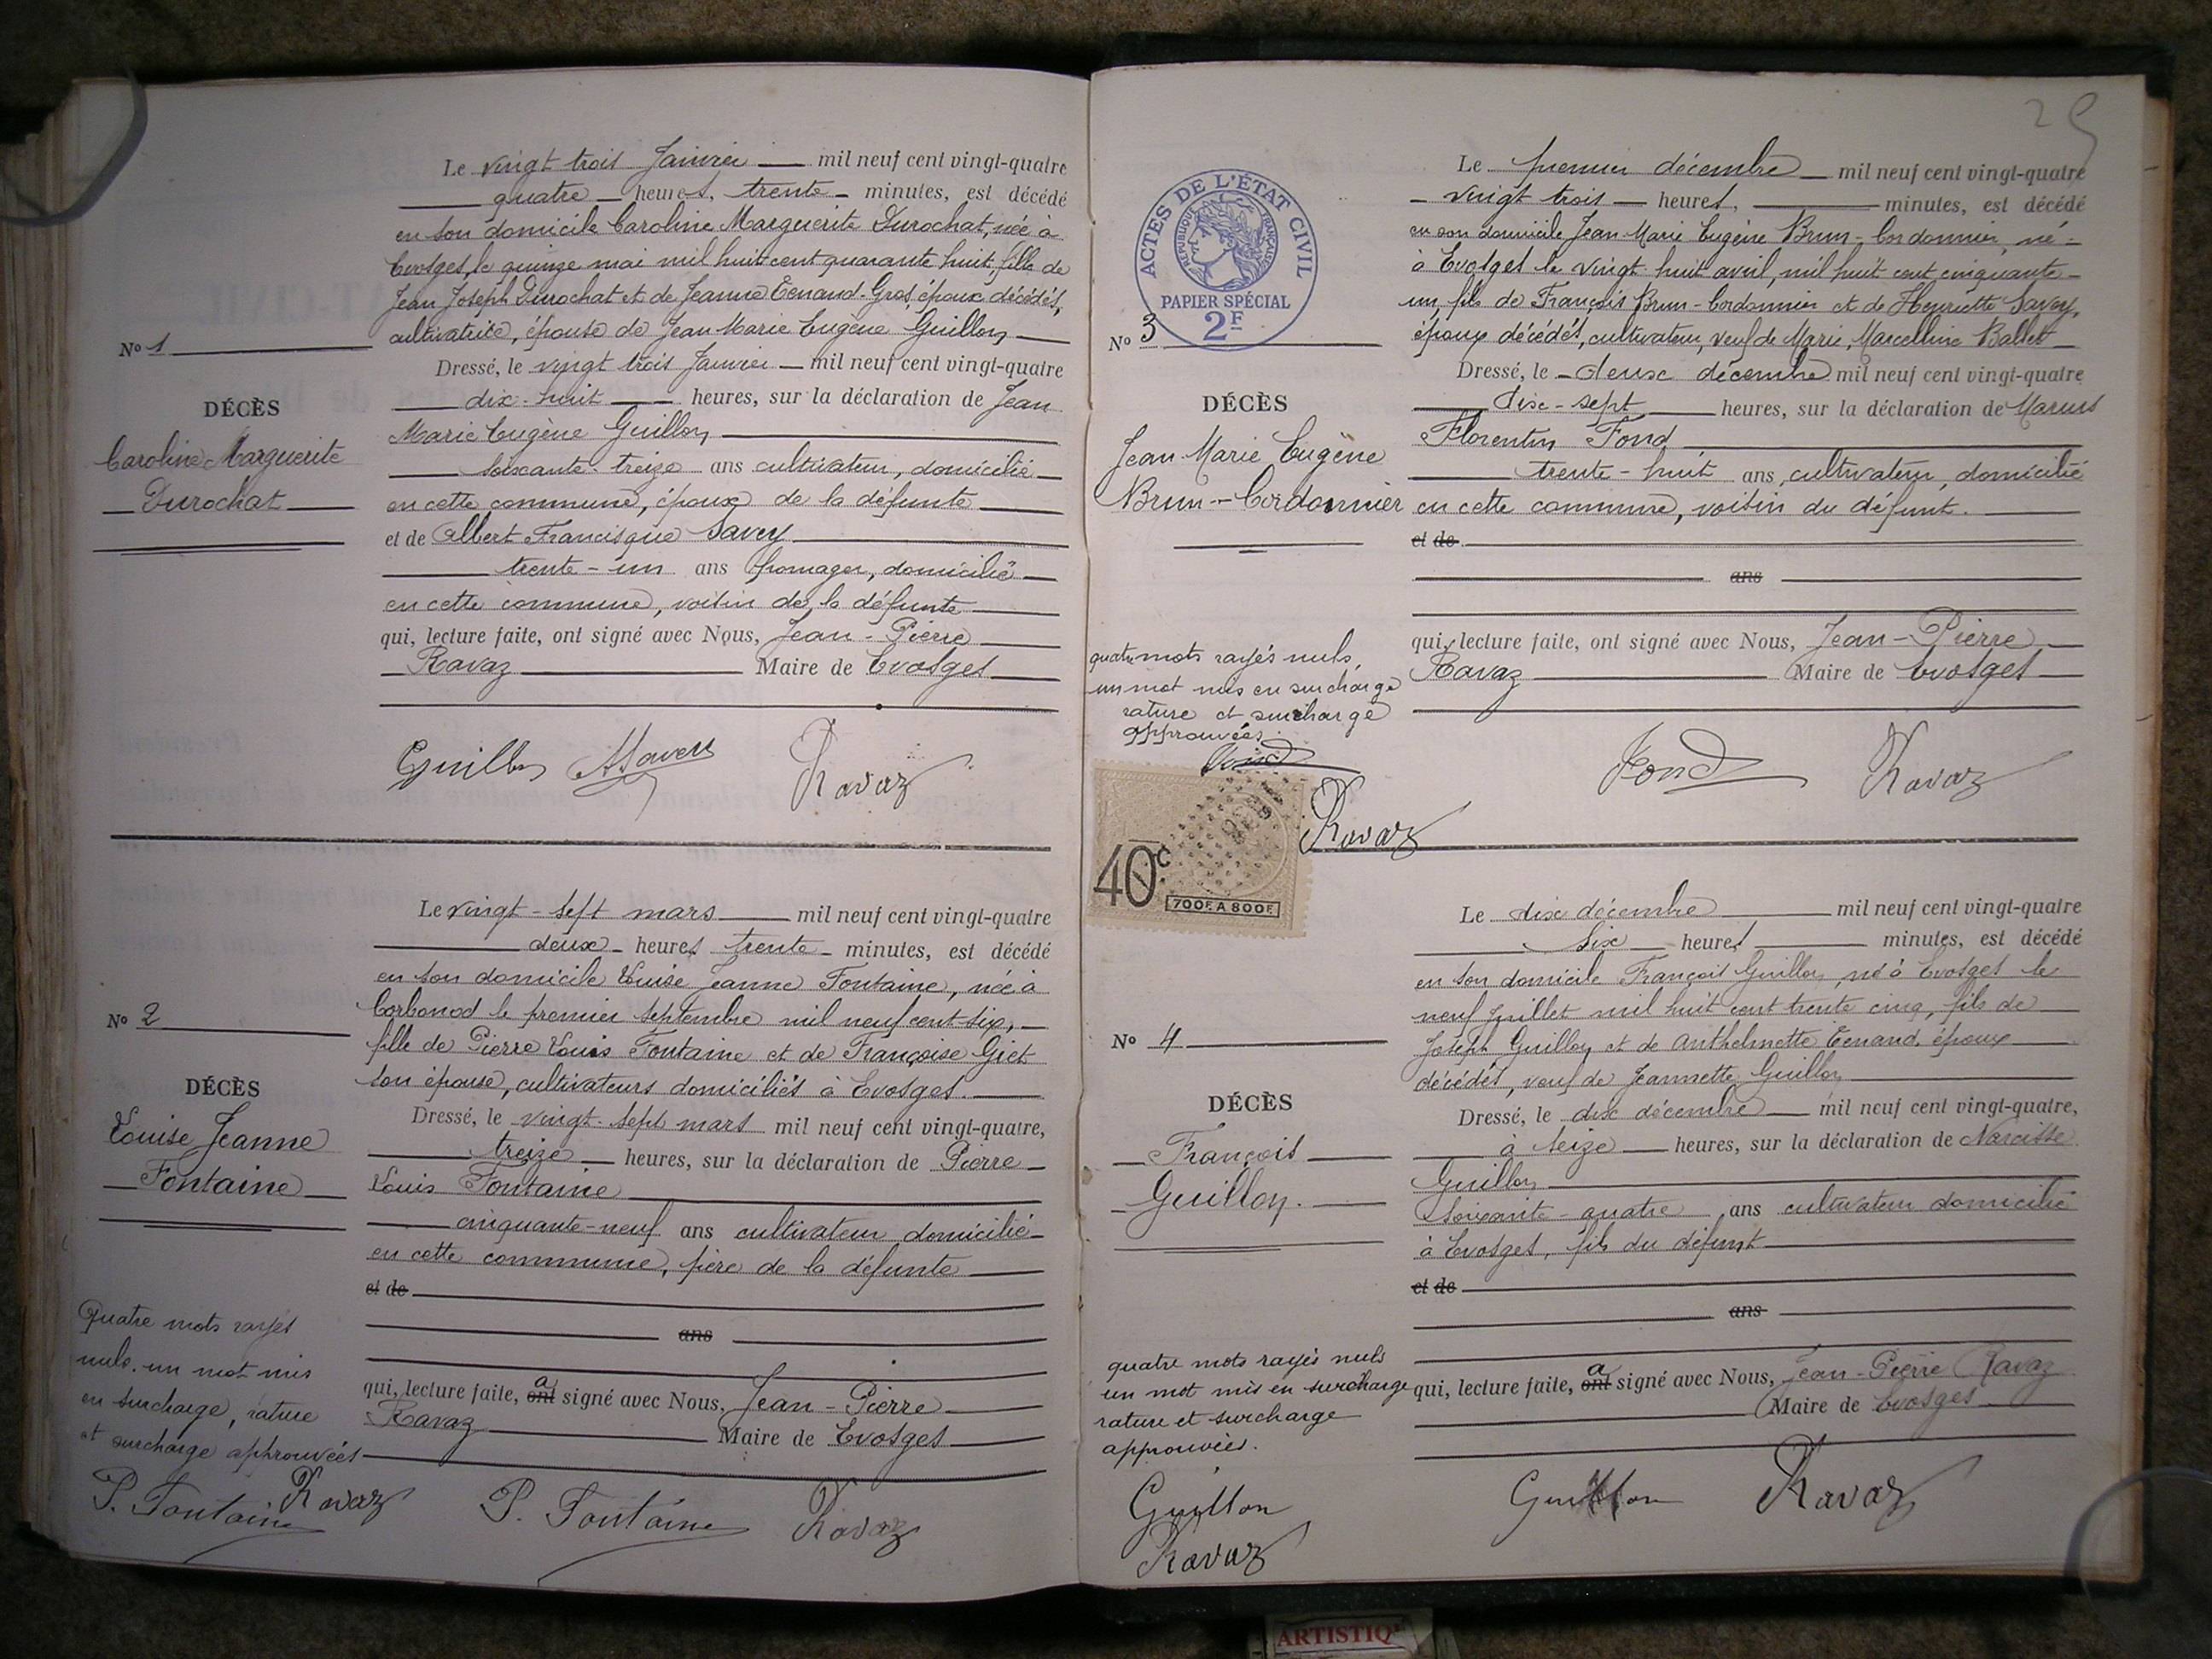 Le vingt trois Janvier mil neuf cent vingt-quatre
quatre heures, trente minutes, est décédé
en son domicile Caroline Marguerite Durochat, née à
Evosges, le quinze mai mil huit cent quarante huit, fille de
Jean Joseph Durochat et de Jeanne Tenand-Gros, époux décédés,
cultivatrice, épouse de Jean Marie Eugène Guillon
No 1
Dressé, le vingt trois Janvier mil neuf cent vingt-quatre
dix-huit heures, sur la déclaration de Jean
Marie Eugène Guillon
DÉCÈS
Caroline Marguerite
Durochat
soixante-treize ans cultivateur, domicilié
en cette commune, époux de la défunte
et de Albert Francisque Savey
trente-un ans fromager, domicilié
en cette commune, voisin de la défunte
qui, lecture faite, ont signé avec Nous, Jean-Pierre
Ravaz Maire de Evosges
Guillon ASavey Ravaz
Le vingt-sept mars mil neuf cent vingt-quatre
deux heures trente minutes, est décédé
en son domicile Louise Jeanne Fontaine, née à
Corbonod le premier septembre mil neuf cent six,
fille de Pierre Louis Fontaine et de Françoise Giet
son épouse, cultivateurs domiciliés à Evosges.
No 2
DÉCÈS
Louise Jeanne
Fontaine
Dressé, le vingt-sept mars mil neuf cent vingt-quatre,
treize heures, sur la déclaration de Pierre
Louis Fontaine
cinquante-neuf ans cultivateur domicilié
en cette commune, père de la défunte
et de
ans
Quatre mots rayés
nuls. un mot mis
en surcharge, rature
et surcharge approuvées
P. Fontaine Ravaz
qui, lecture faite, ont a signé avec Nous, Jean-Pierre
Ravaz Maire de Evosges
P. Fontaine Ravaz
29
ACTES DE L'ÉTAT CIVIL
RÉPUBLIQUE FRANÇAISE
PAPIER SPÉCIAL
2F
No 3
DÉCÈS
Jean Marie Eugène
Brun-Cordonnier
Le premier décembre mil neuf cent vingt-quatre
vingt trois heures, minutes, est décédé
en son domicile Jean Marie Eugène Brun-Cordonnier, né
à Evosges le vingt-huit avril, mil huit cent cinquante-
un, fils de François Brun-Cordonnier et de Henriette Savey,
époux décédés, cultivateur, veuf de Marie, Marcelline Ballet
Dressé, le deux décembre mil neuf cent vingt-quatre
dix-sept heures, sur la déclaration de Marius
Florentin Fond
trente-huit ans, cultivateur, domicilié
en cette commune, voisin du défunt.
et de
ans
quatre mots rayés nuls,
un mot mis en surcharge
rature et surcharge
approuvées.
Fond
Ravaz
qui, lecture faite, ont signé avec Nous, Jean-Pierre
Ravaz Maire de Evosges
Fond Ravaz
40c
700F. A 800F.
Le dix décembre mil neuf cent vingt-quatre
six heures minutes, est décédé
en son domicile François Guillon, né à Evosges le
neuf juillet mil huit cent trente cinq, fils de
Joseph Guillon et de Anthelmette Tenand, époux
décédés, veuf de Jeannette Guillon
No 4
DÉCÈS
François
Guillon.
Dressé, le dix décembre mil neuf cent vingt-quatre,
à seize heures, sur la déclaration de Narcisse
Guillon
soixante-quatre ans cultivateur domicilié
à Evosges, fils du défunt
et de
ans
quatre mots rayés nuls
un mot mis en surcharge
rature et surcharge
approuvées.
Guillon
Ravaz
qui, lecture faite, ont a signé avec Nous, Jean-Pierre Ravaz
Maire de Evosges
Guillon Ravaz
ARTISTIQ